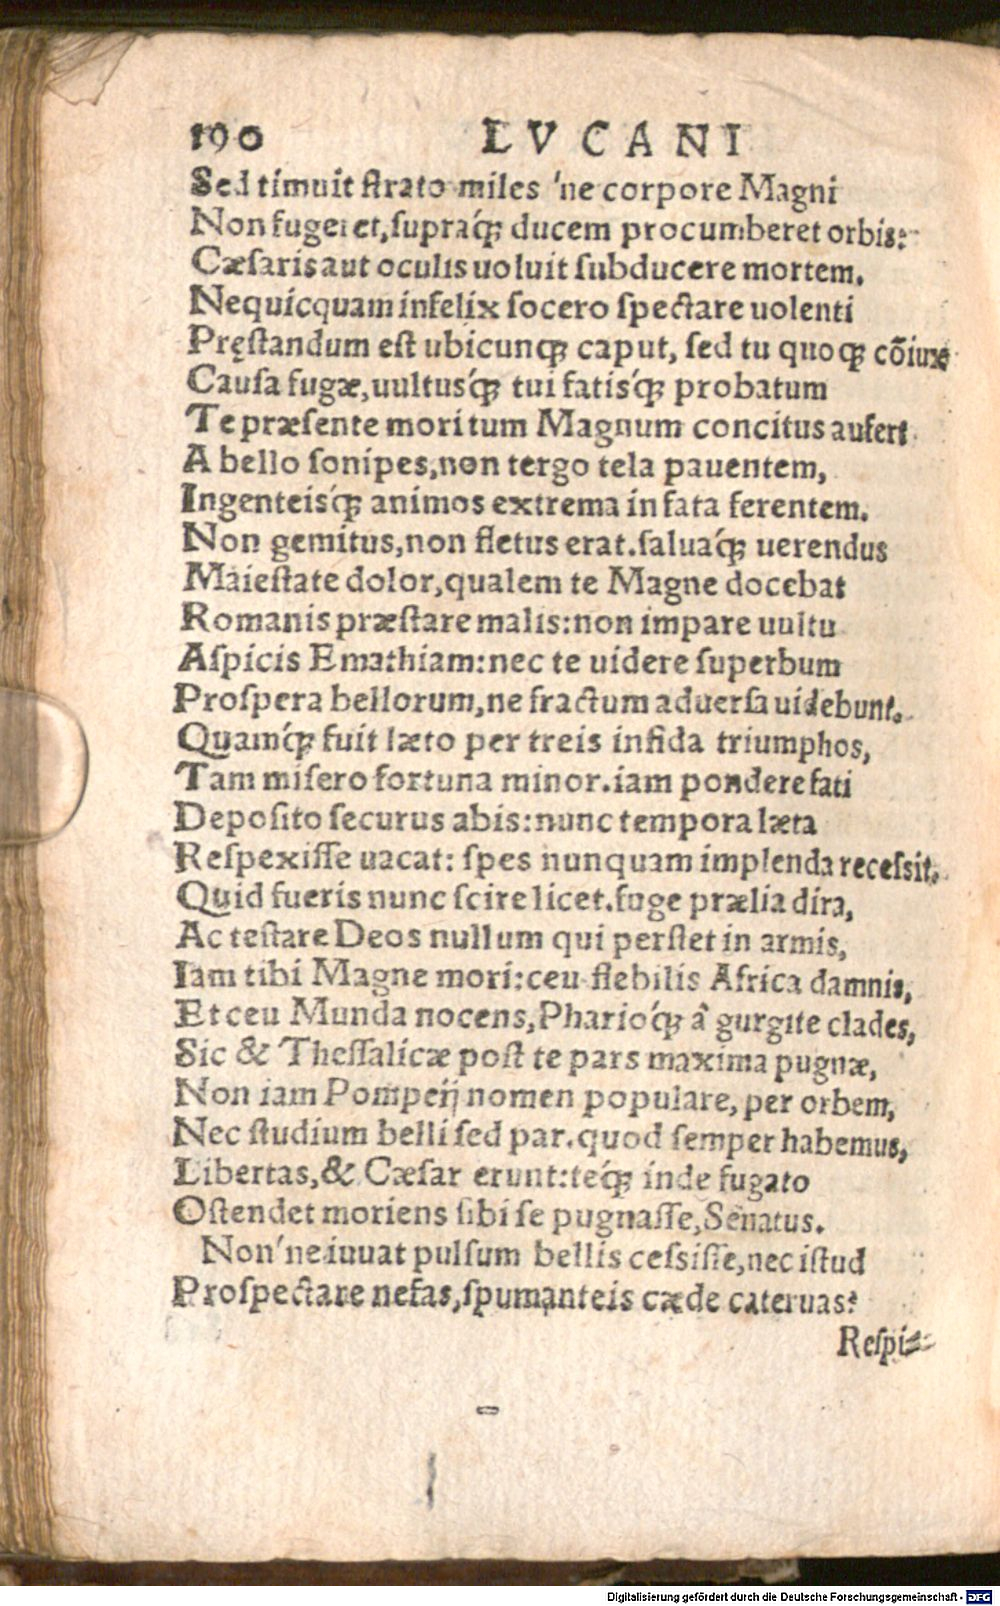 190 LVCANI
Sed timuit ſtrato miles 'ne corpore Magni
Non fugeret, ſupraq́ꝫ ducem procumberet orbis:
Cæſaris aut oculis uoluit ſubducere mortem.
Nequicquam infelix ſocero ſpectare uolenti
Pręſtandum eſt ubicunqꝫ caput, ſed tu quoqꝫ cõiux
Cauſa fugæ, uultusq́ꝫ tui fatisq́ꝫ probatum
Te præſente moritum Magnum concitus aufert
A bello ſonipes, non tergo tela pauentem,
Ingenteisq́ꝫ animos extrema in fata ferentem.
Non gemitus, non fletus erat. ſaluaq́ꝫ uerendus
Maieſtate dolor, qualem te Magne docebat
Romanis præſtare malis: non impare uultu
Aſpicis Emathiam: nec te uidere ſuperbum
Proſpera bellorum, ne fractum aduerſa uidebunt.
Quamq́ꝫ fuit læto per treis infida triumphos,
Tam miſero fortuna minor. iam pondere fati
Depoſito ſecurus abis: nunc tempora læta
Reſpexiſſe uacat: ſpes nunquam implenda receſsit.
Quid fueris nunc ſcire licet. fuge prælia dira,
Ac teſtare Deos nullum qui perſtet in armis,
Iam tibi Magne mori: ceu flebilis Africa damnis,
Et ceu Munda nocens, Pharioq́ꝫ â gurgite clades,
Sic & Theſſalicæ poſt te pars maxima pugnæ,
Non iam Pompeij nomen populare, per orbem,
Nec ſtudium belli ſed par. quod ſemper habemus,
Libertas, & Cæſar erunt: teq́ꝫ inde fugato
Oſtendet moriens ſibi ſe pugnaſſe, Senatus.
Non'ne iuuat pulſum bellis ceſsiſſe, nec iſtud
Proſpectare nefas, ſpumanteis cæde cateruas?
Reſpi-
Digitalisierung gefördert durch die Deutsche Forschungsgemeinschaft - DFG